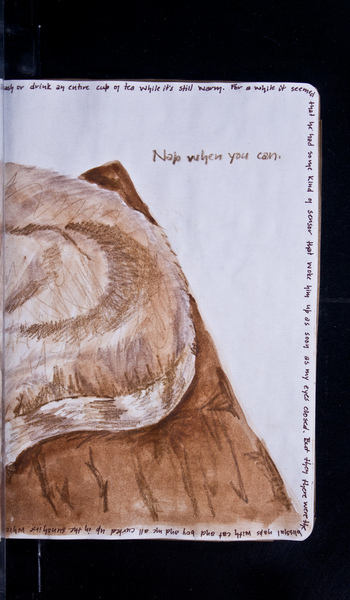 wash or drink an entire cup of tea while it's still warm. For a while it seems
that he had some kind of sensor that woke him up as soon as my eyes closed. But then there were the
blissful naps with cat and boy and me all curled up in the sunshine
Nap when you can.